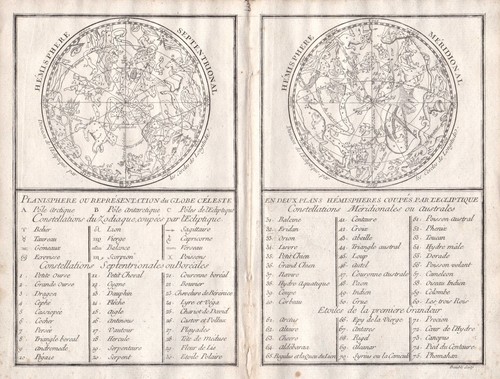 HÉMISPHERE SEPTENTRIONAL
PLANISPHERE OU REPRESENTATION du GLOBE CÉLESTE
A Pôle Arctique B Pôle Antarctique C Pôles de l'Ecliptique
Constellations du Zodiaque, coupées par l'Ecliptique
♈ Belier ♌ Lion ♐ Sagittaire
♉ Taureau ♍ Vierge ♑ Capricorne
♊ Gemeaux ♎ Balance ♒ Verseau
♋ Ecrevisse ♏ Scorpion ♓ Poissons
Constellations Septentrionales ou Boréales
1. Petite Ourse 11. Petit Cheval 21. Couronne boréal
2. Grande Ourse 12. Cygne 22. Bouvier
3. Dragon 13. Dauphin 23. Chevelure de Berenice
4. Cephée 14. Flêche 24. Lyre et Vega
5. Cassiopée 15. Aigle 25. Chariot de David
6. Cocher 16. Antinous 26. Castor et Pollux
7. Persée 17. Vautour 27. Playades
8. Triangle boréal 18. Hercule 28. Tête de Méduse
9. Andromede 19. Serpentaire 29. Fleur de Lis
10. Pégase 20. Serpent 30. Etoile Polaire
HÉMISPHERE MÉRIDIONAL
EN DEUX PLANS HÉMISPHERES COUPÉS PAR L'ECLIPTIQUE
Constellations Méridionales ou Australes
31. Baleine 41. Centaure 51. Poisson austral
32. Eridan 42. Croix 52. Phenix
33. Orion 43. Abeille 53. Toucan
34. Lievre 44. Triangle austral 54. Hydre mâle
35. Petit Chien 45. Loup 55. Dorade
36. Grand Chien 46. Autel 56. Poisson volant
37. Navire 47. Couronne australe 57. Cameleon
38. Hydre Aquatique 48. Paon 58. Oiseau Indien
39. Coupe 49. Indien 59. Colombe
40. Corbeau 50. Grue 60. Les trois Rois
Etoiles de la premiere Grandeur
61. Arctus 66. Epy de la Vierge 71. Procion
62. 67. Antares 72. Cœur de l'Hydre
63. Chevre 68. Rigel 73. Canopus
64. Aldebaran 69. 74. Pied du Centaure
65. Regulus et la Queue du Lion 70. Syrius ou la Canicule 75. Phomahan